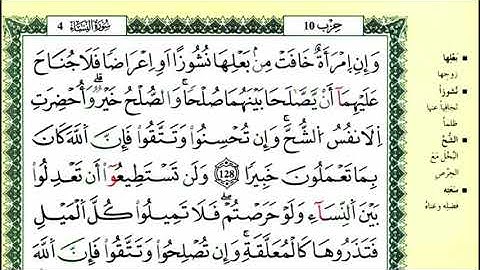 4 سُورَةُ النِّسَاءِ
حِزْب 10
وَإِنِ اِمْرَأَةٌ خَافَتْ مِنۢ بَعْلِهَا نُشُوزًا اَوِ اِعْرَاضًا فَلَا جُنَاحَ
عَلَيْهِمَا أَنْ يَّصَّالَحَا بَيْنَهُمَا صُلْحًا وَالصُّلْحُ خَيْرٌ وَأُحْضِرَتِ
اِلَانفُسُ الشُّحَّ وَإِن تُحْسِنُوا وَتَتَّقُوا فَإِنَّ اَللَّهَ كَانَ
بِمَا تَعْمَلُونَ خَبِيرًا 128 وَلَن تَسْتَطِيعُوا أَن تَعْدِلُوا
بَيْنَ اَلنِّسَآءِ وَلَوْ حَرَصْتُمْ فَلَا تَمِيلُوا كُلَّ اَلْمَيْلِ
فَتَذَرُوهَا كَالْمُعَلَّقَةِ وَإِن تُصْلِحُوا وَتَتَّقُوا فَإِنَّ اَللَّهَ
بَعْلِهَا
زوجها
نُشُوزًا
تجافيا عنها
ظلما
الشُّحَّ
البُخْلَ مَعَ
الحِرْصِ
سَعَتِهِ
فضله وغناه